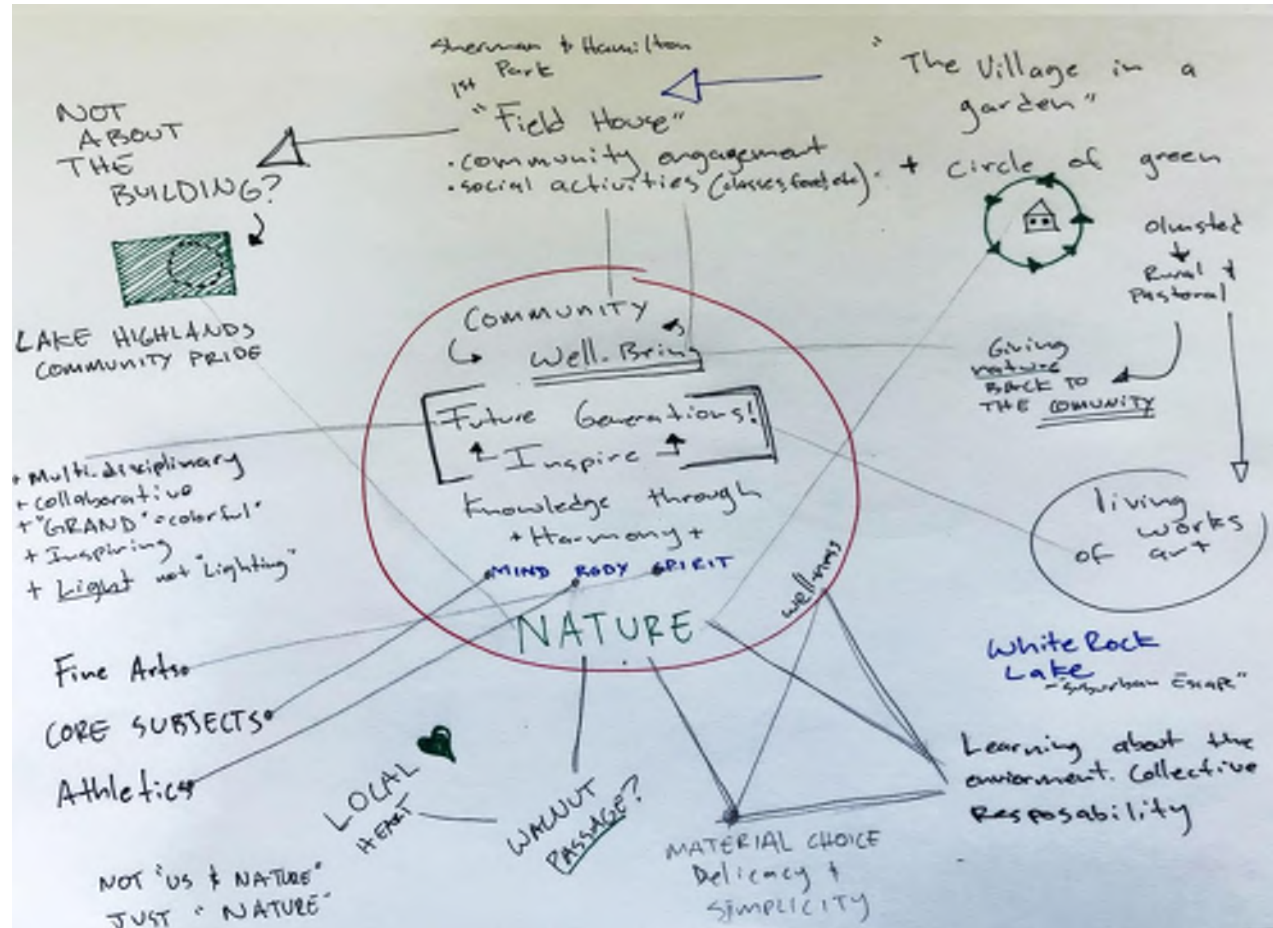 Sherman & Hamilton
Park
1st
"Field House"
• community engagement
• social activities (classes, food, etc)
"The Village in a
garden"
+ circle of green
NOT
ABOUT
THE
BUILDING?
LAKE HIGHLANDS
COMMUNITY PRIDE
Olmsted
Rural &
Pastoral
Giving
nature
BACK TO
THE COMUNITY
living
works
of art
COMMUNITY
Well-Being
Future Generations!
Inspire
Knowledge through
+ Harmony +
MIND BODY SPIRIT
NATURE
wellness
+ Multi-disciplinary
+ collaborative
+ "GRAND" = colorful"
+ Inspiring
+ Light not "Lighting"
Fine Arts
CORE SUBJECTS
Athletics
White Rock
Lake
- "Suburban Escape"
Learning about the
enviorment. Collective
Resposability
LOCAL
HEART
WALNUT
PASSAGE?
MATERIAL CHOICE
Delicacy &
SIMPLICITY
NOT "US & NATURE"
JUST "NATURE"